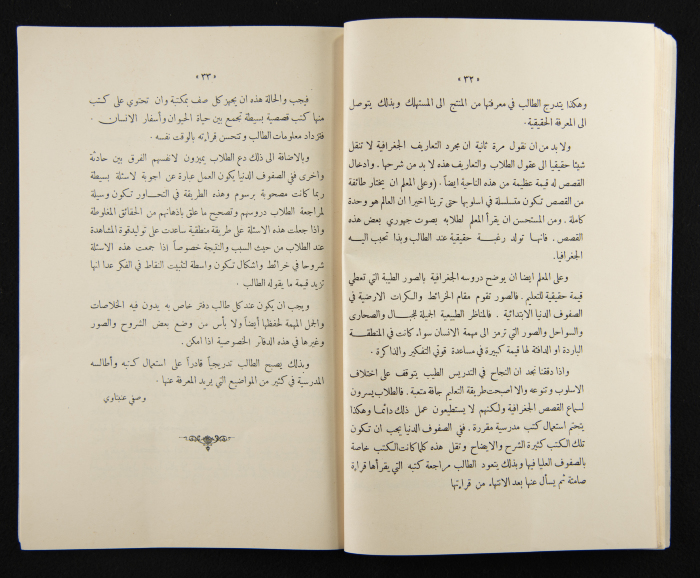 «٣٢»
وهكذا يتدرج الطالب في معرفتها من المنتج الى المستهلك وبذلك يتوصل
الى المعرفة الحقيقية .
ولا بد من ان نقول مرة ثانية ان مجرد التعاريف الجغرافية لا تنقل
شيئا حقيقيا الى عقول الطلاب والتعاريف هذه لا بد من شرحها . وادخال
القصص له قيمة عظيمة من هذه الناحية ايضاً . (وعلى المعلم ان يختار طائفة
من القصص تكون متسلسلة في اسلوبها حتى ترينا اخيرا ان العالم هو وحدة
كاملة . ومن المستحسن ان يقرأ المعلم لطلابه بصوت جهوري بعض هذه
القصص . فانهـا تولد رغبـة حقيقية عند الطالب وبذا تحبب اليـه
الجغرافيا.
وعلى المعلم ايضا ان يوضح دروسه الجغرافية بالصور الطيبة التي تعطي
قيمة حقيقية للتعليم . فالصور تقوم مقام الخرائط والكرات الارضية في
الصفوف الدنيا الابتدائية . فالمناظر الطبيعية الجميلة للجبال والصحارى
والسواحل والصور التي ترمز الى مهمة الانسان سواء كانت في المنطقـة
الباردة او الدافئة لها قيمة كبيرة في مساعدة قوتي التفكير والذاكرة .
واذا دققنا نجد ان النجاح في التدريس الطيب يتوقف على اختلاف
الاسلوب وتنوعه والا اصبحت طريقة التعليم جافة متعبة . فالطلاب يسرون
لسماع القصص الجغرافية ولكنهم لا يستطيعون عمل ذلك دائمـا وهكذا
يتحتم استعمال كتب مدرسية مقررة . ففي الصفوف الدنيا يجب ان تكون
تلك الكتب كثيرة الشرح والايضاح وتقل هذه كلما كانت الكتب خاصة
بالصفوف العليا فيها وبذلك يتعود الطالب مراجعة كتبه التي يقرأها قراءة
صامتة ثم يسأل عنها بعد الانتهاء من قراءتها
«٣٣»
فيجب والحالة هذه ان يجهز كل صف بمكتبة وان تحتوي على كتب
منها كتب قصصية بسيطة تجمع بين حياة الحيوان وأسفار الانسان .
فتزداد معلومات الطالب وتتحسن قراءته بالوقت نفسه .
وبالاضافة الى ذلك دع الطلاب يميزون لانفسهم الفرق بين حادثة
واخرى ففي الصفوف الدنيا يكون العمل عبارة عن اجوبة لاسئلة بسيطة
ربما كانت مصحوبة برسوم وهذه الطريقة في التحاور تكون وسيلة
لمراجعة الطلاب دروسهم وتصحيح ما علق باذهانهم من الحقائق المغلوطة
واذا جعلت هذه الاسئلة على طريقة منطقية ساعدت على توليد قوة المشاهدة
عند الطلاب من حيث السبب والنتيجة خصوصاً اذا جمعت هذه الاسئلة
شروحا في خرائط واشكال تكون واسطة لتثبيت النقاط في الفكر عدا انها
تزيد قيمة ما يقوله الطالب .
ويجب ان يكون عند كل طالب دفتر خاص به يدون فيه الخلاصات
والجمل المهمة لحفظها أيضاً ولا بأس من وضع بعض الشروح والصور
وغيرها في هذه الدفاتر الخصوصية اذا امكن .
وبذلك يصبح الطالب تدريجياً قادراً على استعمال كتبه وأطالسه
المدرسية في كثير من المواضيع التي يريد المعرفة عنها .
وصفي عنبتاوي